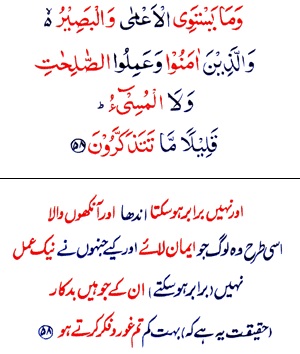 وَمَا يَسْتَوِی الْاَعْمٰی وَالْبَصِيْرُ ۙ
وَالَّذِيْنَ اٰمَنُوْا وَعَمِلُوا الصّٰلِحٰتِ
وَلَا الْمُسِیْٓءُ ؕ
قَلِيْلًا مَّا تَتَذَكَّرُوْنَ ۝۵۸
اور نہیں برابر ہو سکتا اندھا اور آنکھوں والا
اسی طرح وہ لوگ جو ایمان لائے اور کیے جنہوں نے نیک عمل
نہیں (برابر ہو سکتے) ان کے جو ہیں بدکار
(حقیقت یہ ہے کہ) بہت کم تم غور و فکر کرتے ہو ۝۵۸